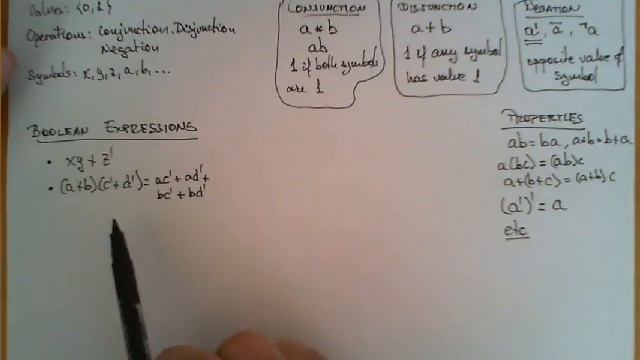 Values: {0, 1}
Operations: Conjunction, Disjunction
Negation
Symbols: x, y, z, a, b, ...
CONJUNCTION
a * b
ab
1 if both symbols
are 1
DISJUNCTION
a + b
1 if any symbol
has value 1
NEGATION
a', ā, ¬a
opposite value of
symbol
BOOLEAN EXPRESSIONS
• xy + z'
• (a+b)(c'+d') = ac' + ad' +
bc' + bd'
PROPERTIES
ab = ba, a+b = b+a
a(bc) = (ab)c
a+(b+c) = (a+b)c
(a')' = a
etc